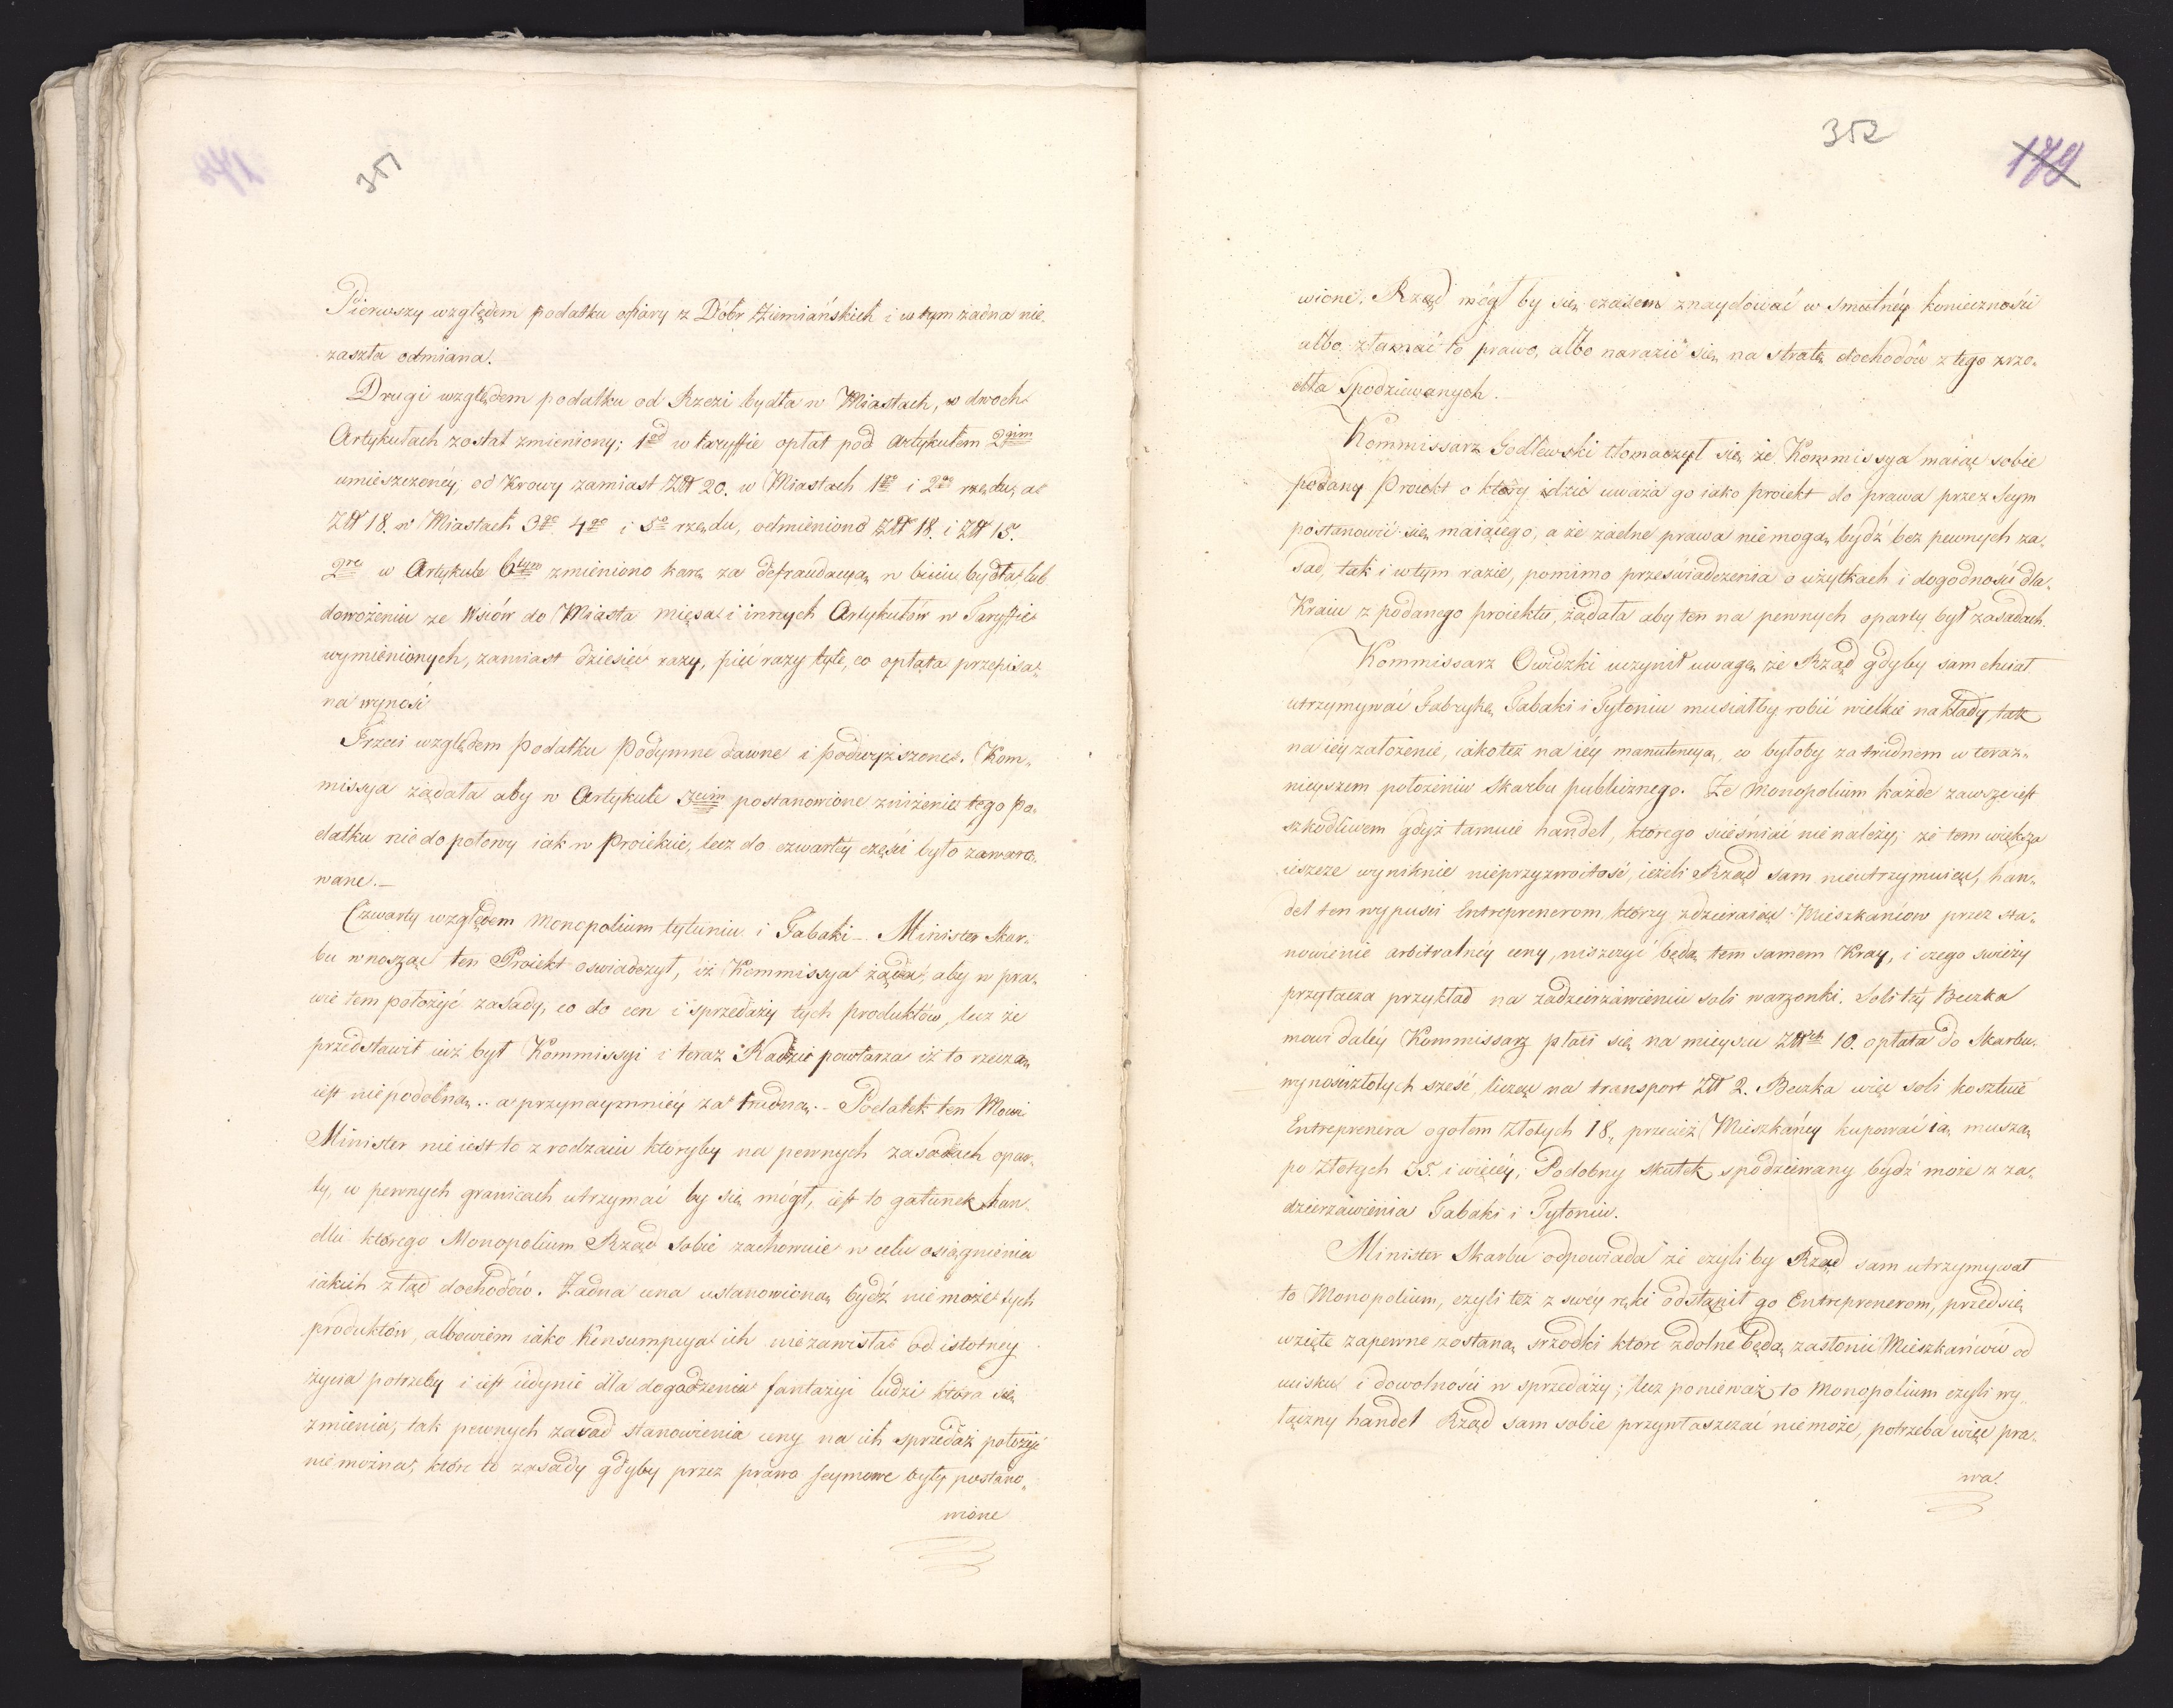 351
Pierwszy względem podatku ofiary z Dóbr Ziemiańskich i w tym żadna nie-
zaszła odmiana.
Drugi względem podatku od Rzezi bydła w Miastach, w dwoch
Artykułach został zmieniony; 1od w taryffie opłat pod Artykułem 2gim
umieszczonéy, od Krowy zamiast Złł 20. w Miastach 1go i 2go rzędu, a
Złł 18. w Miastach 3go 4go i 5o rzędu, odmieniono Złł 18. i Złł 15.
2re w Artykule 6tym zmieniono karę za defraudacyą w biciu bydła lub
dowożeniu ze Wsiów do Miasta mięsa i innych Artykułów w Taryffie
wymienionych, zamiast dziesięć razy, pięć razy tyle, co opłata przepisa-
na wynosi
Trzeci względem Podatku Podymne dawne i podwyższone. Kom-
missya żądała aby w Artykule 3cim postanowione zniżenie tego Po-
datku nie do połowy iak w Proiekcie, lecz do czwartéy części było zawaro-
wane.—
Czwarty względem Monopolium tytuniu i Tabaki — Minister Skar-
bu wnosząc ten Proiekt oswiadczył, iż Kommissya żąda, aby w pra-
wie tem położyć zasady, co do cen i sprzedaży tych produktów, lecz że
przedstawił iuż był Kommissyi i teraz Radzie powtarza iż to rzeczą
iest niepodobną.. a przynaymniéy za trudną.- Podatek ten Mowi
Minister nie iest to z rodzaiu któryby na pewnych zasadach opar-
ty, w pewnych granicach utrzymać by się mógł, iest to gatunek han-
dlu którego Monopolium Rząd sobie zachowuie w celu osiągnienia
iakich ztąd dochodów. Żadna cena ustanowioną bydź nie może tych
produktów, albowiem iako Konsumpcya ich niezawisła od istotnéy
życia potrzeby i iest iedynie dla dogodzenia fantazyi ludzi która się
zmienia, tak pewnych zasad stanowienia ceny na ich sprzedaż położyć
nie można, które to zasady gdyby przez prawo seymowe były postano-
wione
352
179
wione. Rząd mógł by się czasem znaydować w smutnéy konieczności
albo złamać to prawo, albo narazić się na stratę dochodów z tego zrzo-
dła spodziewanych.
Kommissarz Godlewski tłomaczył się że Kommissya maiąc sobie
podany Proiekt o który idzie uważa go iako proiekt do prawa przez Seym
postanowić się maiącego, a że żadne prawa nie mogą bydź bez pewnych za-
sad, tak i w tym razie, pomimo przeświadczenia o użytkach i dogodności dla
Kraiu z podanego proiektu, żądała aby ten na pewnych oparty był zasadach.
Kommissarz Owidzki uczynił uwagę że Rząd gdyby sam chciał
utrzymywać Fabrykę Tabaki i Tytoniu musiałby robić wielkie nakłady, tak
na iéy założenie, iakoteż na iéy manutencyą, co byłoby za trudnem w teraz-
nieyszem położeniu Skarbu publicznego. Że Monopolium każde zawsze iest
szkodliwem gdyż tamuie handel, którego sciésniać nie należy, że tem większa
ieszcze wyniknie nieprzyzwoitość, ieżeli Rząd sam nieutrzymuiąc, han-
del ten wypuści Entreprenerom, którzy zdzieraiąc Mieszkańców przez sta-
nowienie arbitralnéy ceny, niszczyć będą tem samem Kray, i czego świeży
przytacza przykład na zadzierżawieniu soli warzonki. Soli téy Beczka
mowi daléy Kommissarz płaci się na mieyscu Złłch 10. opłata do Skarbu
wynosi złotych sześć, licząc na transport Złł 2. Beczka więc soli kosztuie
Entreprenera ogołem Złotych 18., przecież Mieszkańcy kupować ią muszą
po Złotych 35. i więcéy; Podobny skutek spodziewany bydź może z za-
dzierżawienia Tabaki i Tytoniu.
Minister Skarbu odpowiada że czyli by Rząd sam utrzymywał
to Monopolium, czyli też z swéy ręki odstąpił go Entreprenerom, przedsię
wzięte zapewne zostaną srzodki które zdolne będą zasłonić Mieszkańców od
ucisku i dowolności w sprzedaży; lecz ponieważ to Monopolium czyli wy-
łączny handel Rząd sam sobie przywłaszczać nie może, potrzeba więc pra-
wa.